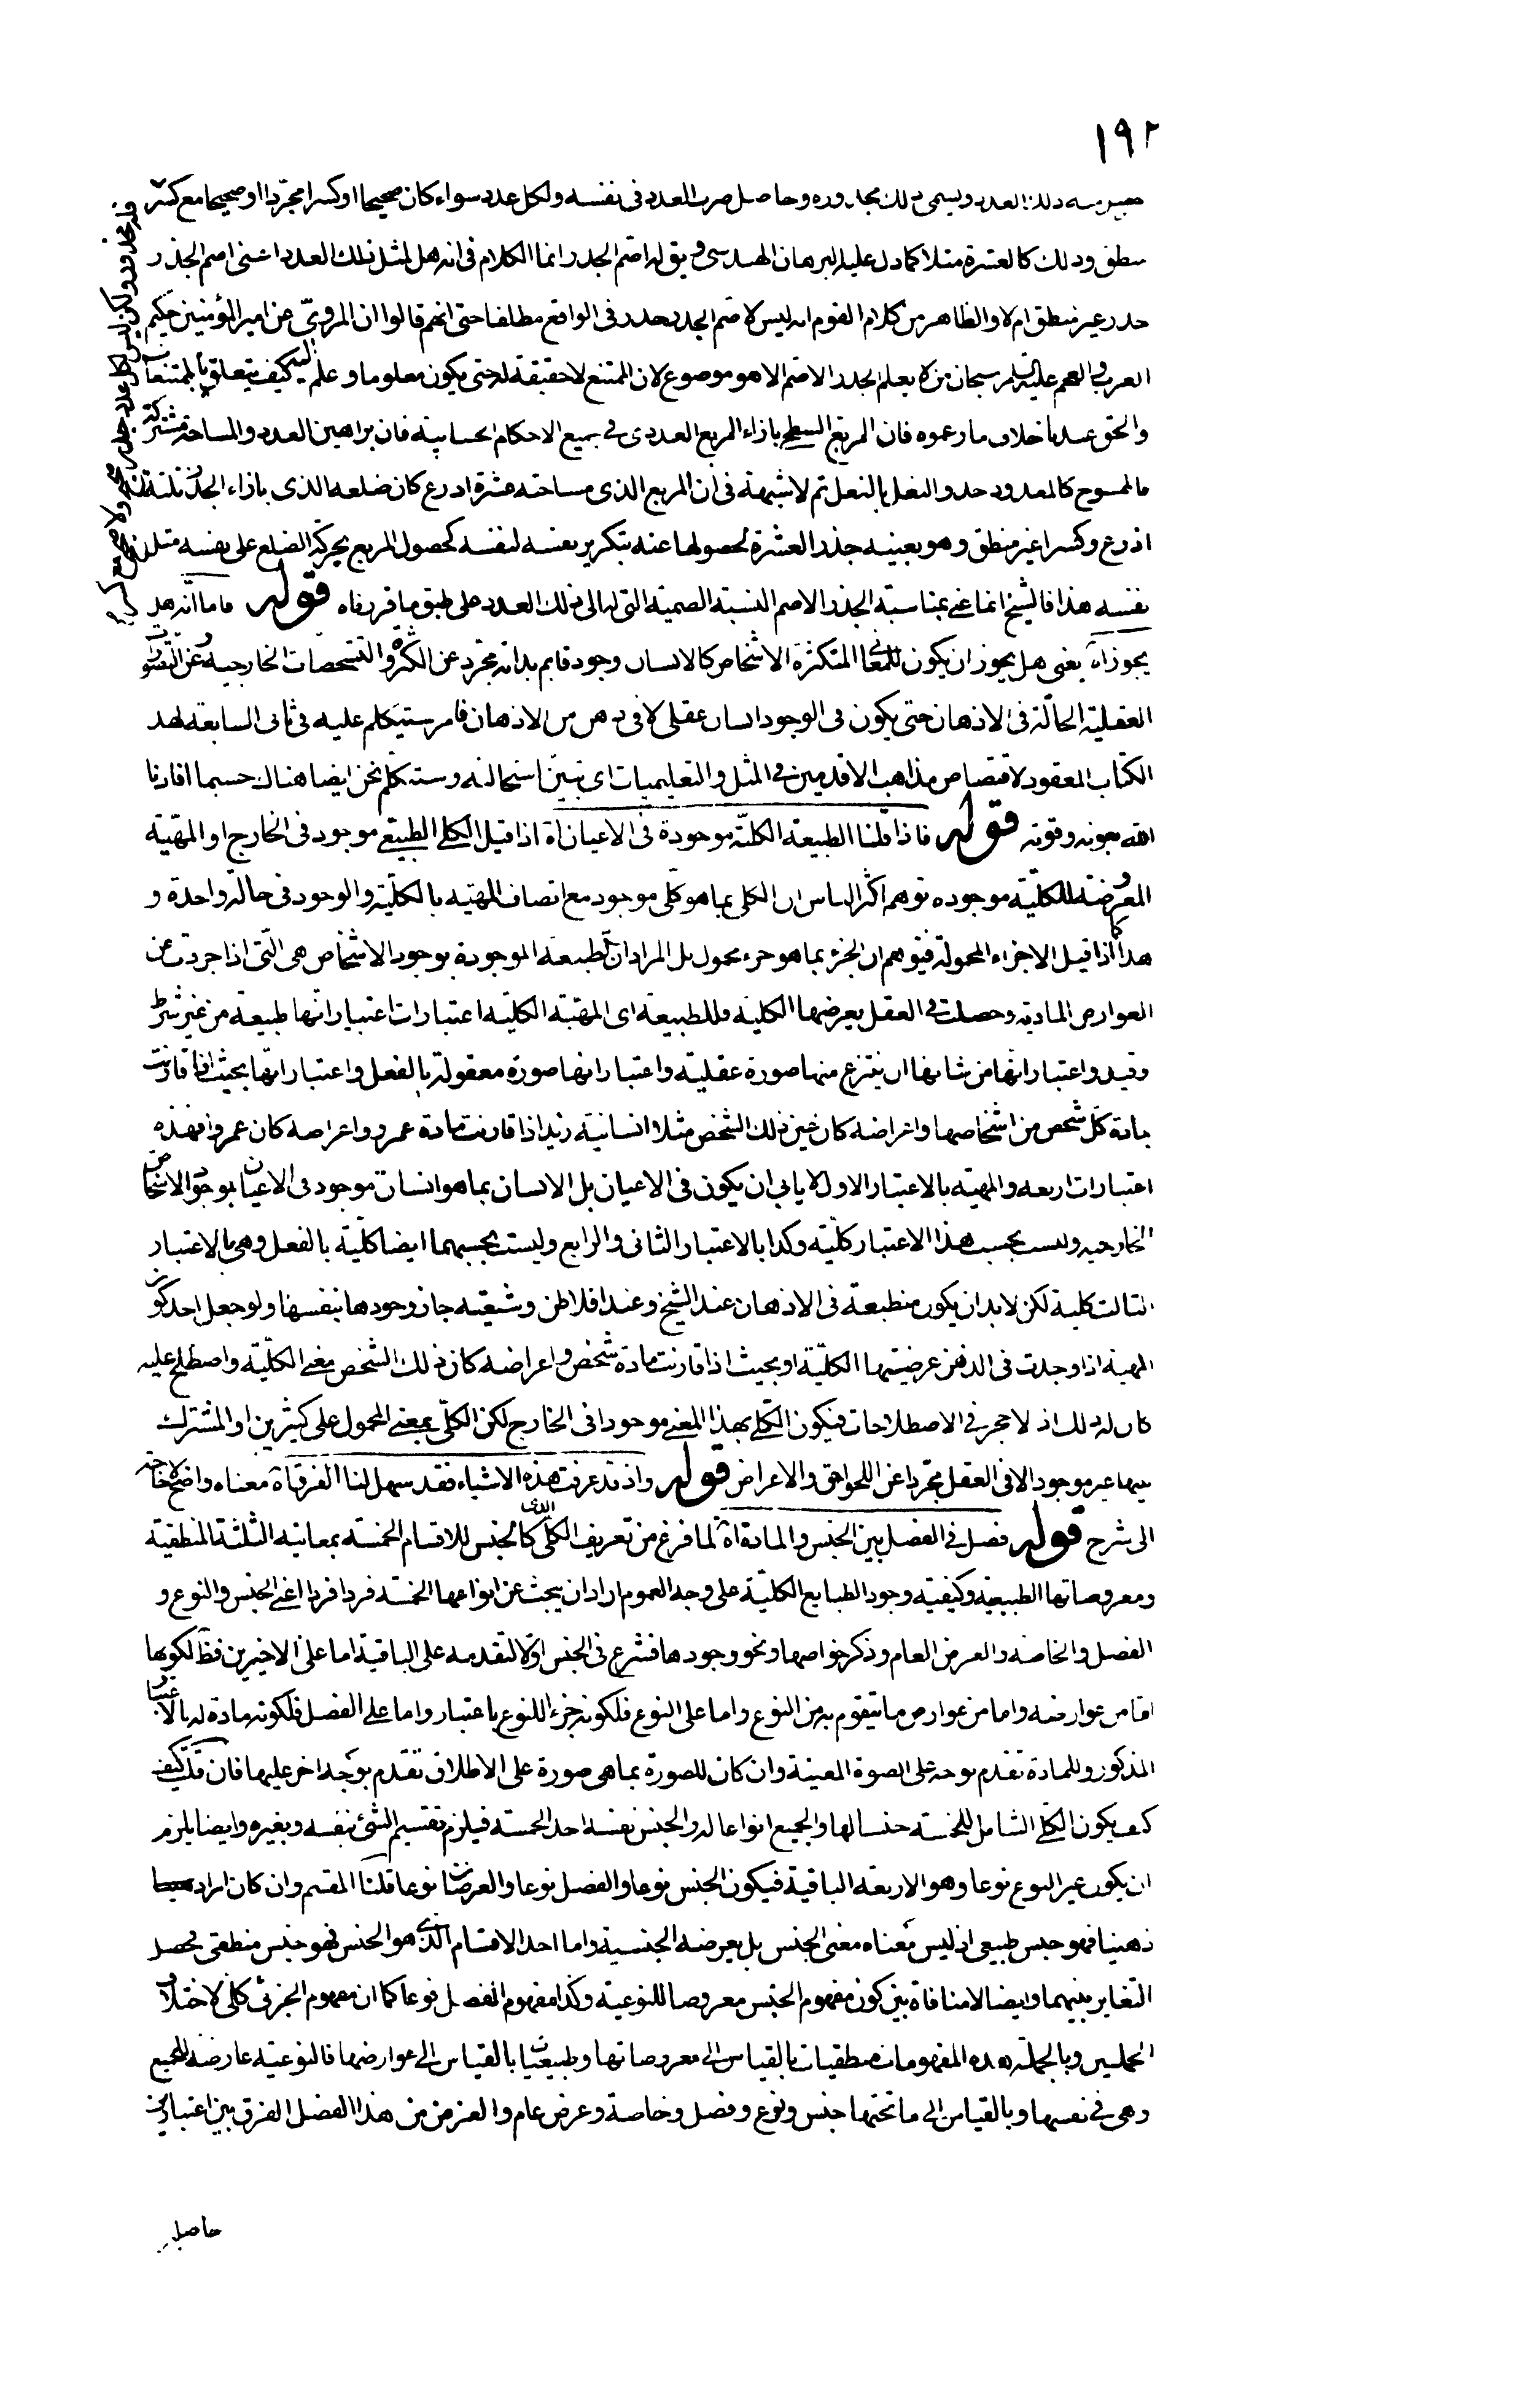 ١٩٢
ذلك العدد ويسمى ذلك مجذوره وحاصل ضرب العدد فى نفسه ولكل عدد سواء كان صحيحا او كسرا مجردا او صحيحا مع كسر
فله مجذور ولكن ليس لكل عدد جذر صحيح ولا صحيح مع كسر
منطق وذلك كالعشرة مثلا كما دل عليه البرهان الهندسى ويق له اصم الجذر انما الكلام فى انه هل لمثل ذلك العدد اعنى اصم الجذر
جذر غير منطق ام لا والظاهر من كلام القوم انه ليس لاصم الجذر جذر فى الواقع مطلقا حتى انهم قالوا ان المروىّ عن امير المؤمنين حكيم
العرب والعجم عليه السلم سبحان من لا يعلم الجذر الاصم الا هو موضوع لان الممتنع لا حقيقة له حتى يكون معلوما وعلم الله كيف يتعلق بالممتنعات
والحق عندنا خلاف ما زعموه فان المربع السطحى بازاء المربع العددى فى جميع الاحكام الحسابية فان براهين العدد والمساحة مشتركة
فالممسوح كالمعدود حذو النعل بالنعل ثم لا شبهة فى ان المربع الذى مساحته عشرة اذرع كان ضلعه الذى بازاء الجذر ثلثة
اذرع وكسرا غير منطق وهو بعينه جذر العشرة لحصولها عنه بتكرير نفسه لنفسه كحصول المربع بحركة الضلع على نفسه مثل
نفسه هذا فالشيخ انما عنى بمناسبة الجذر الاصم النسبة الصمية التى له الى ذلك العدد على طبق ما قررناه قوله فاما انه هل
يجوز آه يعنى هل يجوز ان يكون للمعانى المتكثرة الاشخاص كالانسان وجود قايم بذاته مجرد عن الكثرة والتشخصات الخارجية وعن التصورات
العقلية الحالّة فى الاذهان حتى يكون فى الوجود انسان عقلى لا فى ذهن من الاذهان فامر سيتكلم عليه فى ثانى السابعة لهذا
الكتاب المعقود لاقتصاص مذاهب الاقدمين فى المثل والتعليميات اى تبيّن استحالته وستكلم نحن ايضا هناك حسبما افادنا
الله بعونه وقوته قوله فاذا قلنا الطبيعة الكلية موجودة فى الاعيان آه اذا قيل الكلى الطبيعى موجود فى الخارج او المهيّة
المعروضة للكليّة موجوده توهم اكثر الناس ان الكلى بما هو كلى موجود مع اتصاف المهية بالكليّة والوجود فى حالة واحدة و
هذا كما اذا قيل الاجزاء المحمولة فيتوهم ان الجزء بما هو جزء محمول بل المراد ان الطبيعة الموجودة بوجود الاشخاص هى الّتى اذا جردت عن
العوارض المادية وحصلت فى العقل يعرضها الكلية فللطبيعة اى المهية الكليّة اعتبارات اعتبار انّها طبيعة من غير شرط
وقيد واعتبار انّها من شانها ان ينتزع منها صورة عقلية واعتبار انها صورة معقولة بالفعل واعتبار انّها بحيث اذا قارنت
مادة كلّ شخص من اشخاصها واعراضه كان عين ذلك الشخص مثلا انسانية زيد اذا قارنت مادة عمرو واعراضه كان عمروا فهذه
اعتبارات اربعه والمهيّة بالاعتبار الاول لا يابى ان يكون فى الاعيان بل الانسان بما هو انسان موجود فى الاعيان بوجود الاشخاص
الخارجيه وليست بحسب هذا الاعتبار كليّة وكذا بالاعتبار الثانى والرابع وليست بحسبهما ايضا كليّة بالفعل وهى بالاعتبار
الثالث كلية لكن لا بد ان يكون منطبعة فى الاذهان عند الشيخ وعند افلاطن وشيعته جاز وجودها بنفسها ولو جعل احد كون
المهية اذا وجدت فى الذهن عرضتها الكليّة او بحيث اذا قارنت مادة شخص واعراضه كان ذلك الشخص معنى الكليّة واصطلح عليه
كان له ذلك اذ لا حجر فى الاصطلاحات فيكون الكلّى بهذا المعنى موجودا فى الخارج لكن الكلّى بمعنى المحمول على كثيرين او المشترك
بينها غير موجود الا فى العقل مجردا عن اللحواحق والاعراض قوله واذ قد عرفت هذه الاشياء فقد سهل لنا الفرق آه معناه واضح لا حاجة
الى شرح قوله فصل فى الفصل بين الجنس والمادة آه لما فرغ من تعريف الكلى الذى كالجنس للاقسام الخمسة بمعانيه الثلثة المنطقية
ومعروضاتها الطبيعيّة وكيفيّة وجود الطبايع الكليّة على وجه العموم اراد ان يبحث عن انواعها الخمسة فردا فردا اعنى الجنس والنوع و
الفصل والخاصه والعرض العام وذكر خواصها ونحو وجودها فشرع فى الجنس اوّلا لتقدمه على الباقية اما على الاخيرين فظ لكونها
اما من عوارضه واما من عوارض ما يتقوم به من النوع واما على النوع فلكونه جزءا للنوع باعتبار واما على الفصل فلكونه مادة له بالاعتبار
المذكور وللمادة تقدم بوجه على الصورة المعينة وان كان للصورة بما هى صورة على الاطلاق تقدم بوجه اخر عليها فان قلت كيف
كيف يكون الكلّى الشامل للخمسة جنسا لها والجميع انواعا له والجنس نفسه احد الخمسة فيلزم تقسيم الشئ بنفسه وبغيره وايضا يلزم
ان يكون غير النوع نوعا وهو الاربعة الباقية فيكون الجنس نوعا والفصل نوعا والعرضان نوعا قلنا المقسم وان كان امرا
ذهنيا فهو جنس طبيعى اذ ليس معناه معنى الجنس بل يعرضه الجنسية واما احد الاقسام الذى هو الجنس فهو جنس منطقى فحصل
التغاير بينهما وايضا لا منافاة بين كون مفهوم الجنس معروضا للنوعية وكذا مفهوم الفصل نوعا كما ان مفهوم الجزئى كلى لاختلاف
الحملين وبالجملة هذه المفهومات منطقيات بالقياس الى معروضاتها وطبيعيات بالقياس الى عوارضها فالنوعية عارضة للجميع
وهى فى نفسها وبالقياس الى ما تحتها جنس ونوع وفصل وخاصة وعرض عام والغرض من هذا الفصل الفرق بين اعتبارين
حاصل